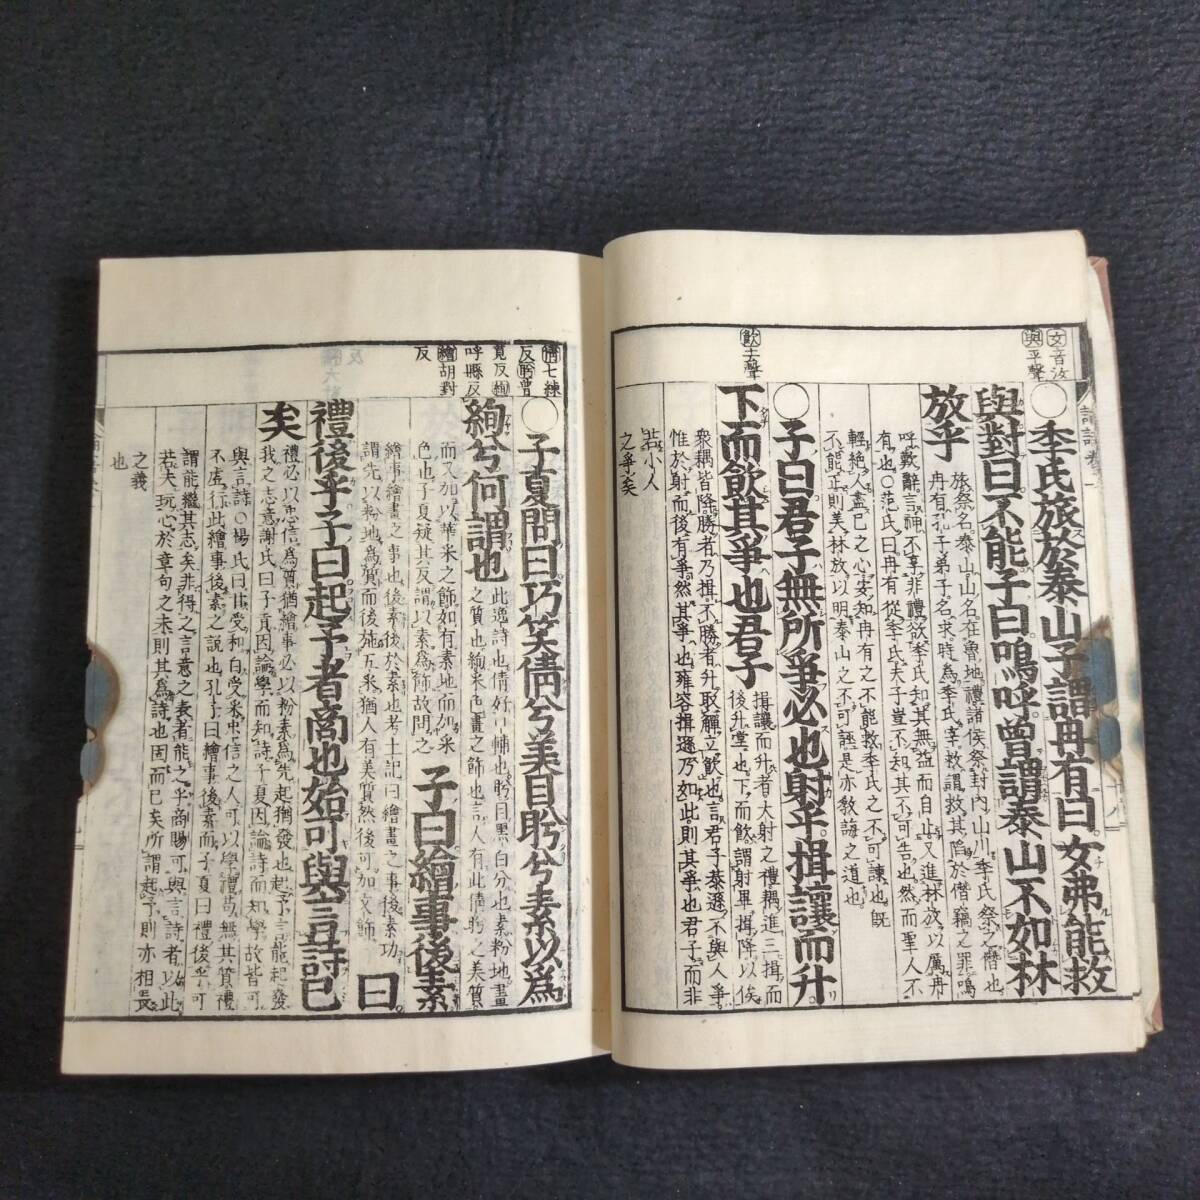 女音汝
與平聲
○季氏旅於泰山子謂冉有曰女弗能救
與對曰不能子曰嗚呼曾謂泰山不如林
放乎
旅祭名泰山山名在魯地禮諸侯祭封內山川季氏祭之僭也
冉有孔子弟子名求時爲季氏宰救謂救其陷於僭竊之罪嗚
呼歎辭言神不享非禮欲季氏知其無益而自止又進林放以厲冉
有也○范氏曰冉有從季氏夫子豈不知其不可告也然而聖人不
輕絕人盡己之心安知冉有之不能救季氏之不可諫也既
不能正則美林放以明泰山之不可誣是亦教誨之道也
飲去聲
○子曰君子無所爭必也射乎揖讓而升
下而飲其爭也君子
揖讓而升者大射之禮耦進三揖而
後升堂也下而飲謂射畢揖降以俟
衆耦皆降勝者乃揖不勝者升取觶立飲也言君子恭遜不與人爭
惟於射而後有爭然其爭也雍容揖遜乃如此則其爭也君子而非
若小人
之爭矣
倩七練
反盼普
莧反絢
呼縣反
繪胡對
反
○子夏問曰巧笑倩兮美目盼兮素以爲
絢兮何謂也
此逸詩也倩好口輔也盼目黑白分也素粉地畫
之質也絢采色畫之飾也言人有此倩盼之美質
而又加以華采之飾如有素地而加采
色也子夏疑其反謂以素爲飾故問之
子曰繪事後素
繪事繪畫之事也後素後於素也考工記曰繪畫之事後素功
謂先以粉地爲質而後施五采猶人有美質然後可加文飾
曰
禮後乎子曰起予者商也始可與言詩已
矣
禮必以忠信爲質猶繪事必以粉素爲先起猶發也起予言能起發
我之志意謝氏曰子貢因論學而知詩子夏因論詩而知學故皆可
與言詩○楊氏曰甘受和白受采忠信之人可以學禮苟無其質禮
不虛行此繪事後素之說也孔子曰繪事後素而子夏曰禮後乎可
謂能繼其志矣非得之言意之表者能之乎商賜可與言詩者以此
若夫玩心於章句之末則其爲詩也固而已矣所謂起予則亦相長
之義
也